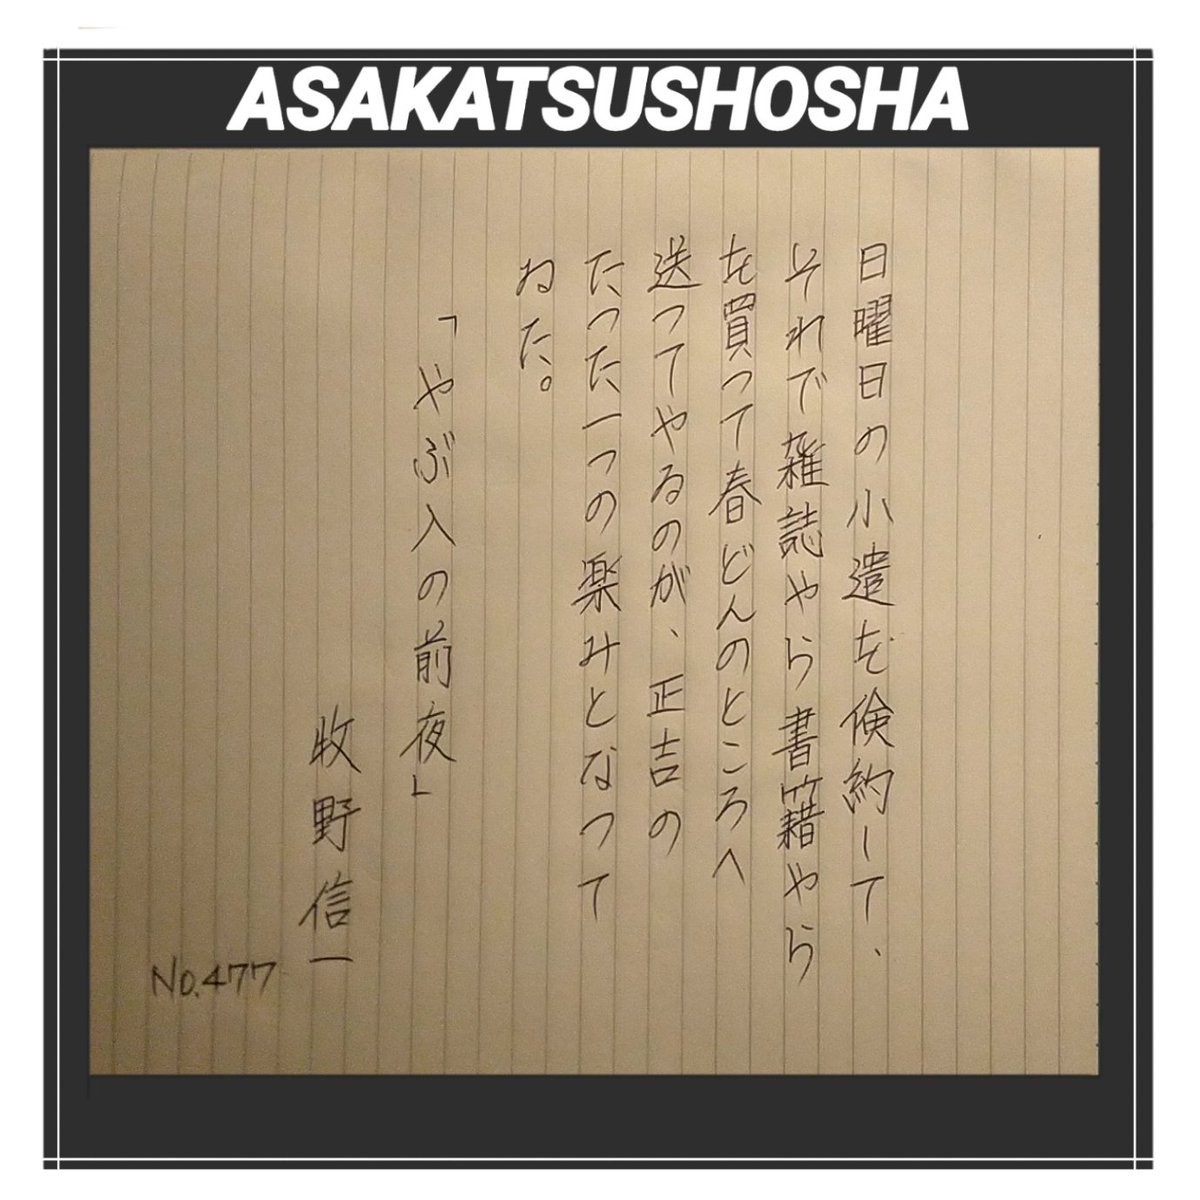 ASAKATSUSHOSHA
日曜日の小遣を倹約して、
それで雑誌やら書籍やら
を買って春どんのところへ
送ってやるのが、正吉の
たった一つの楽みとなって
ゐた。
「やぶ入の前夜」
牧野信一
No.477